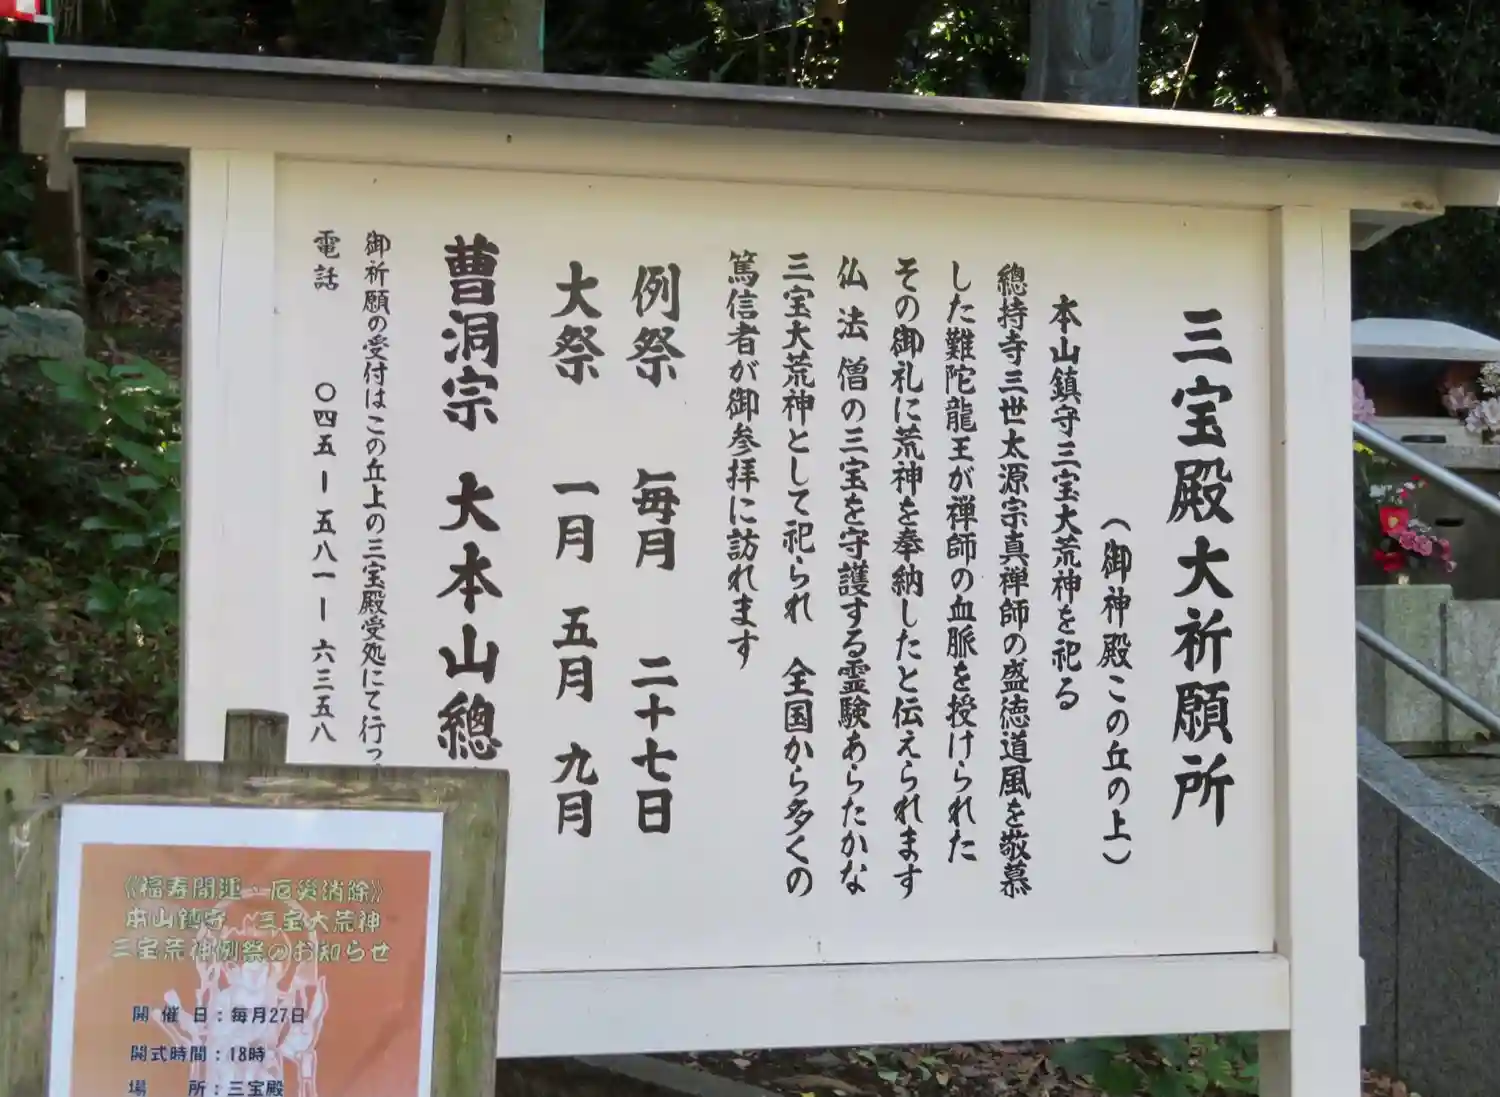 三宝殿大祈願所
（御神殿この丘の上）
本山鎮守三宝大荒神を祀る
總持寺三世太源宗真禅師の盛徳道風を敬慕
した難陀龍王が禅師の血脈を授けられた
その御礼に荒神を奉納したと伝えられます
仏 法 僧の三宝を守護する霊験あらたかな
三宝大荒神として祀られ 全国から多くの
篤信者が御参拝に訪れます
例祭 毎月 二十七日
大祭 一月 五月 九月
曹洞宗 大本山總
御祈願の受付はこの丘上の三宝殿受処にて行っ
電話 〇四五ー五八一ー六三五八
《福寿開運・厄災消除》
本山鎮守 三宝大荒神
三宝荒神例祭のお知らせ
開催日：毎月27日
開式時間：18時
場 所：三宝殿